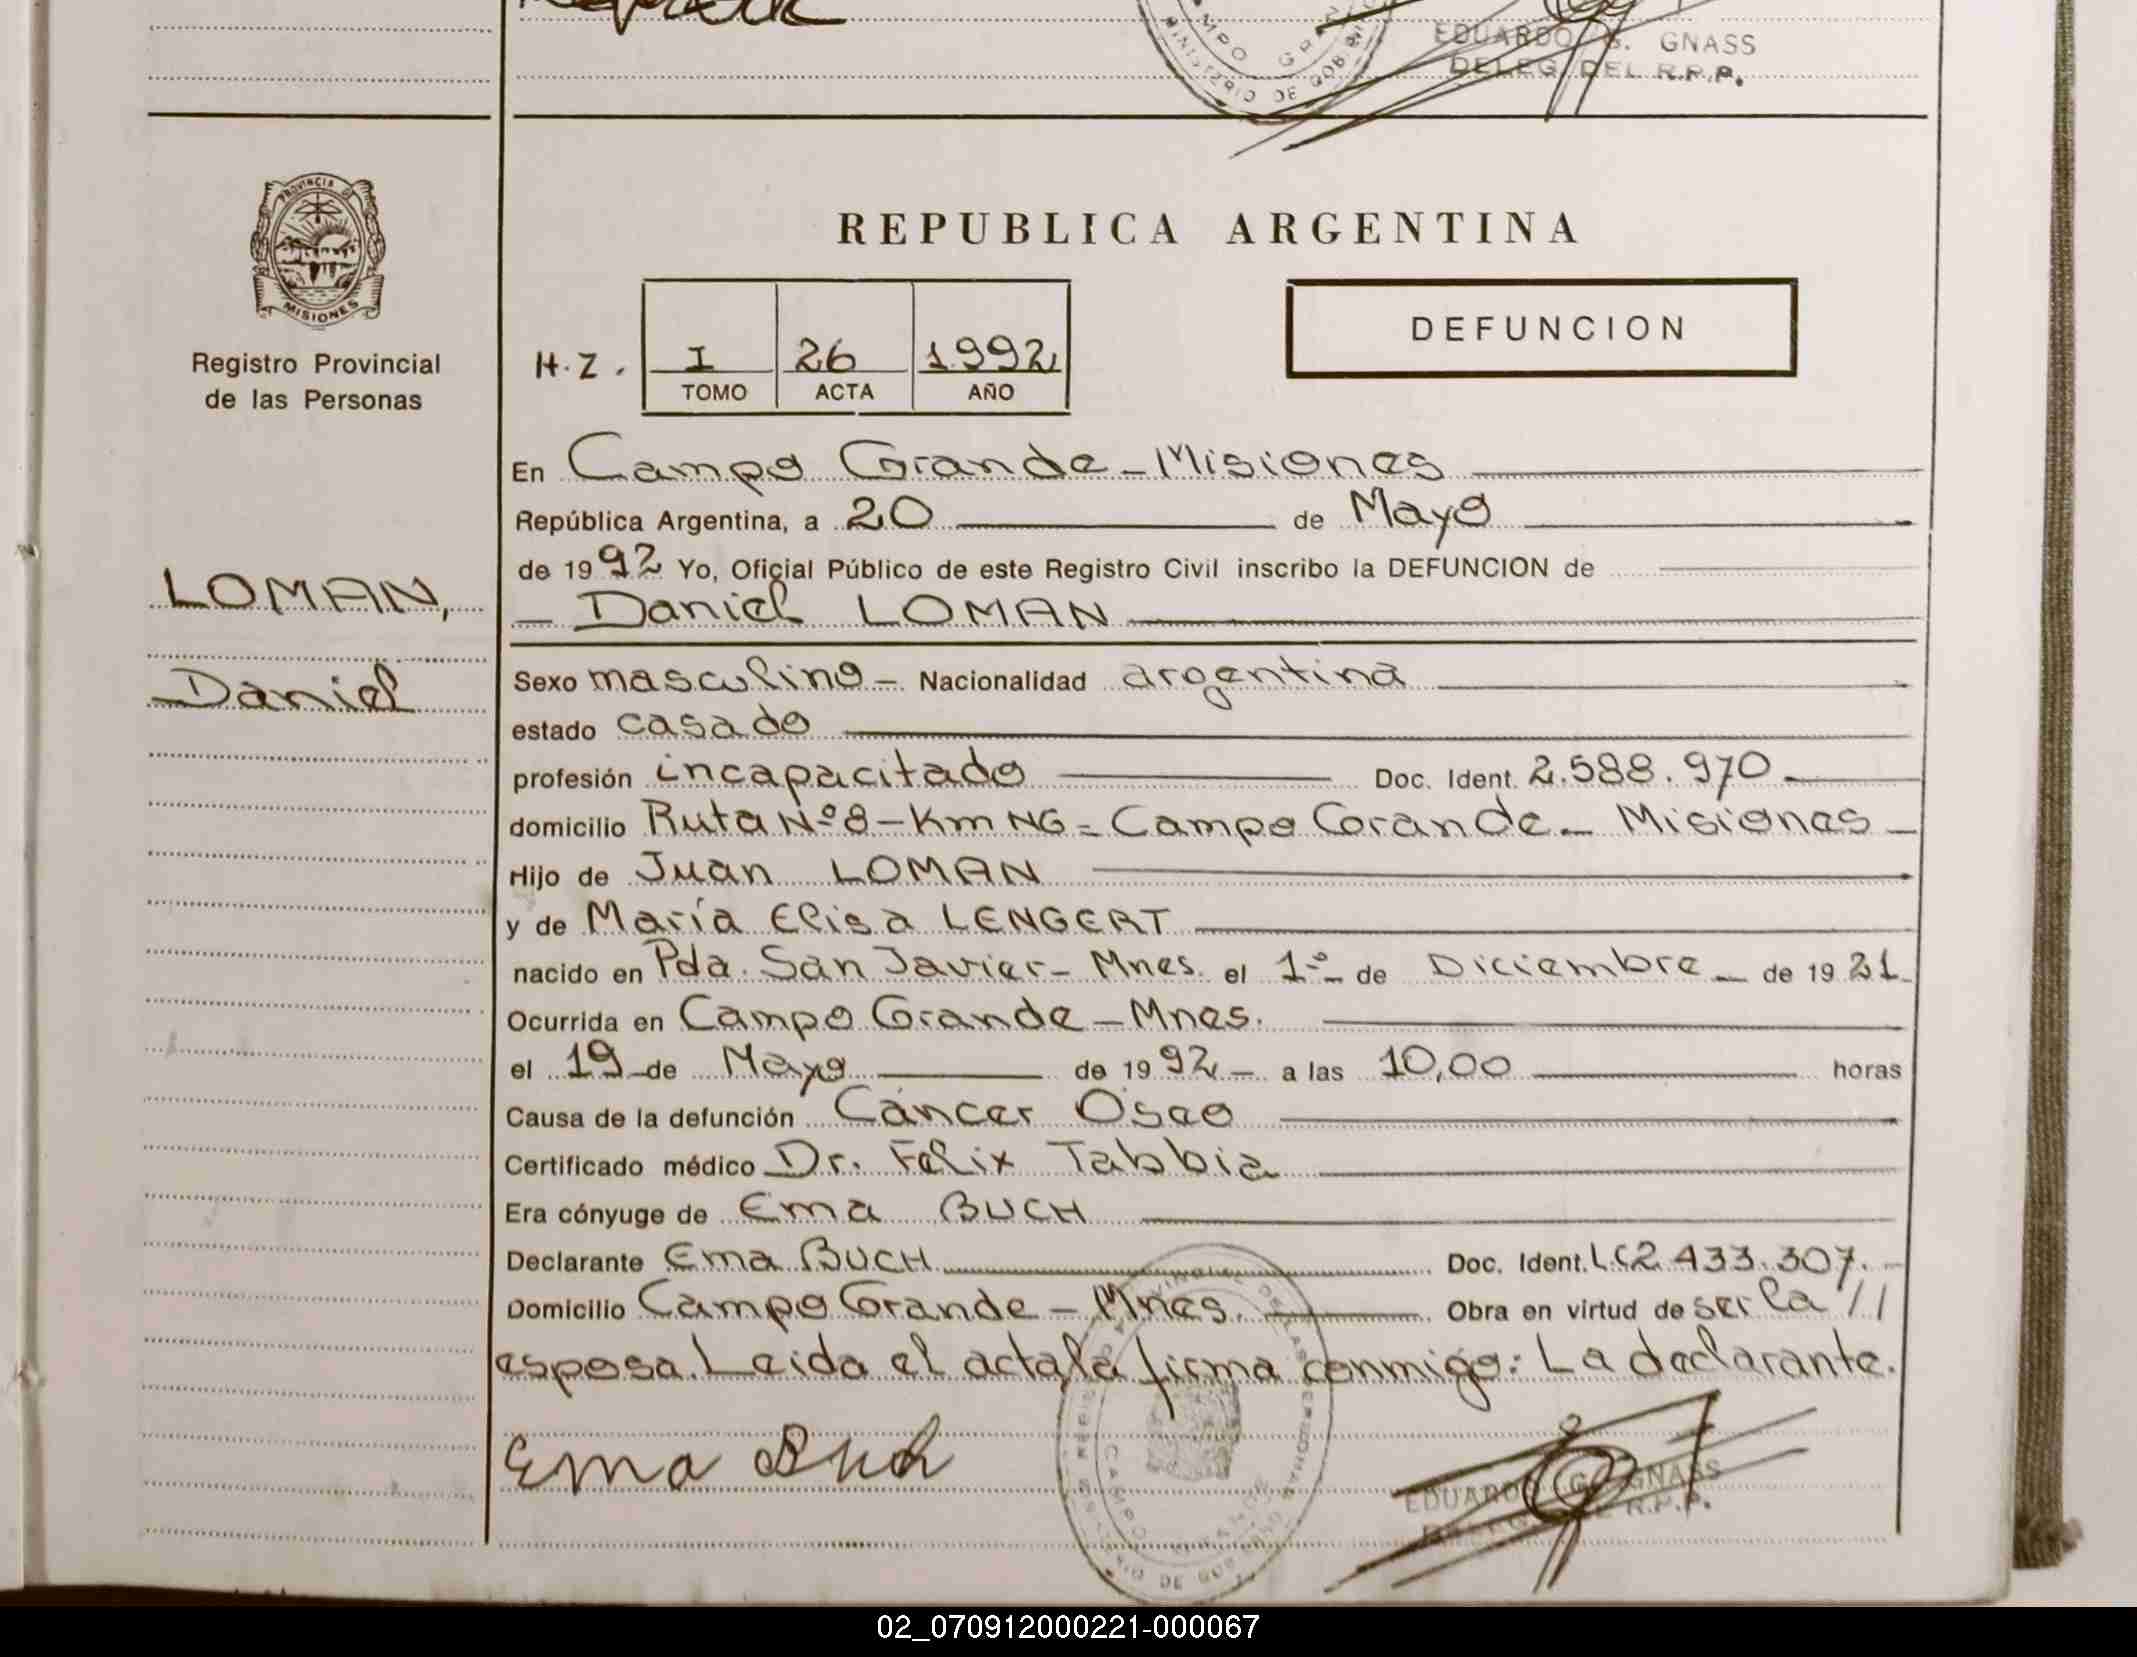 EDUARDO G. GNASS
DELEG. DEL R.P.P.
MINISTERIO DE GOBIERNO
PROVINCIA DE
MISIONES
Registro Provincial
de las Personas
LOMAN,
Daniel
REPUBLICA ARGENTINA
H.Z. I 26 1992
TOMO ACTA AÑO
DEFUNCION
En Campo Grande - Misiones
República Argentina, a 20 de Mayo
de 1992 Yo, Oficial Público de este Registro Civil inscribo la DEFUNCION de
- Daniel LOMAN
Sexo masculino - Nacionalidad argentina
estado casado
profesión incapacitado Doc. Ident. 2.588.970
domicilio Ruta Nº 8 - Km NG = Campo Grande - Misiones -
Hijo de Juan LOMAN
y de María Elisa LENGERT
nacido en Pda. San Javier - Mnes. el 1º de Diciembre - de 1921
Ocurrida en Campo Grande - Mnes.
el 19 de Mayo de 1992 - a las 10,00 horas
Causa de la defunción Cáncer Óseo
Certificado médico Dr. Felix Tabbia
Era cónyuge de Ema BUCH
Declarante Ema BUCH Doc. Ident. L.C 2.433.307.-
Domicilio Campo Grande - Mnes. Obra en virtud de ser la //
esposa. Leida el acta, la firma conmigo: La declarante.
Ema Buch
CAMPO GRANDE
EDUARDO G. GNASS
DELEG. DEL R.P.P.
02_070912000221-000067